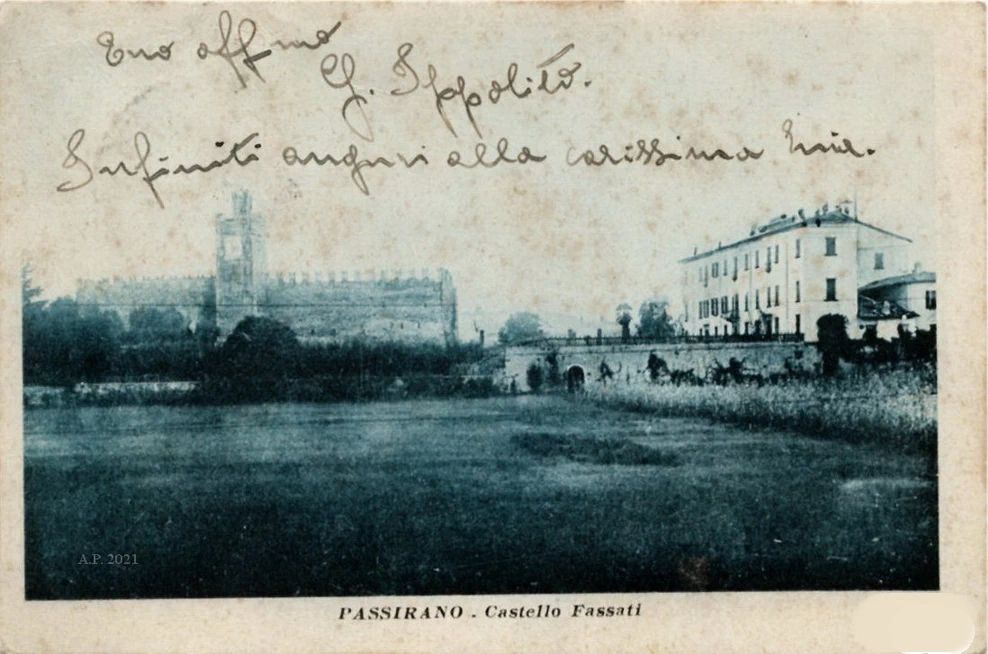 Tuo affmo
G. Ippolito.
Infiniti auguri alla carissima
A.P. 2021
PASSIRANO - Castello Fassati